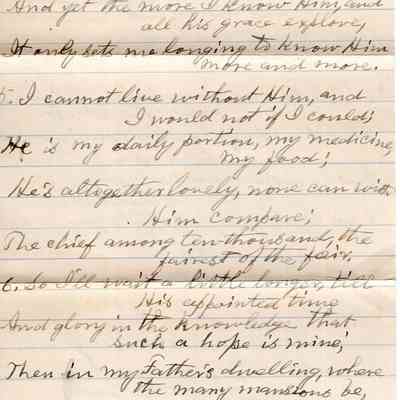 And yet the more I know Him, and
all his grace explore,
It only sets me longing to know Him
more and more.
5. I cannot live without Him, and
I would not if I could;
He is my daily portion, my medicine,
my food;
He's altogether lovely, none can with
Him compare;
The chief among ten thousand, the
fairest of the fair.
6. So I'll wait a little longer, till
His appointed time
And glory in the knowledge that
such a hope is mine;
Then in my Father's dwelling, where
the many mansions be,